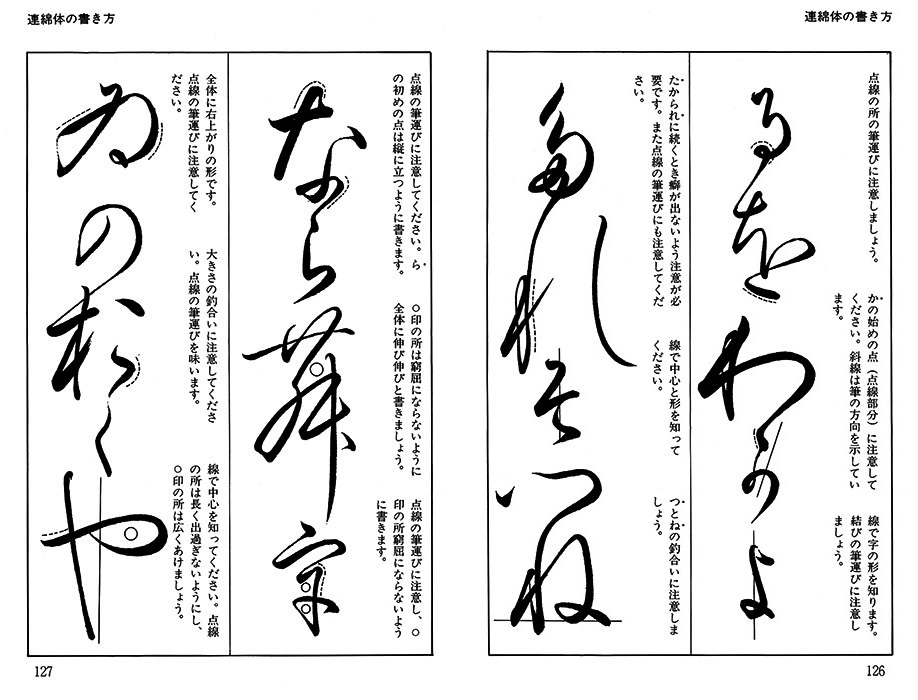 連綿体の書き方
点線の所の筆運びに注意しましょう。
かの始めの点（点線部分）に注意して
ください。斜線は筆の方向を示してい
ます。
線で字の形を知ります。
結びの筆運びに注意し
ましょう。
るをわかよ
たかられに続くとき癖が出ないよう注意が必
要です。また点線の筆運びにも注意してくだ
さい。
線で中心と形を知って
ください。
つとねの釣合いに注意しま
しょう。
し
たれそつね
126
連綿体の書き方
点線の筆運びに注意してください。ら
の初めの点は縦に立つように書きます。
○印の所は窮屈にならないように
全体に伸び伸びと書きましょう。
点線の筆運びに注意し、○
印の所窮屈にならないよう
に書きます。
なら舞宇
全体に右上がりの形です。
点線の筆運びに注意してく
ださい。
大きさの釣合いに注意してくださ
い。点線の筆運びを味います。
線で中心を知ってください。点線
の所は長く出過ぎないようにし、
○印の所は広くあけましょう。
ゐのおくや
127